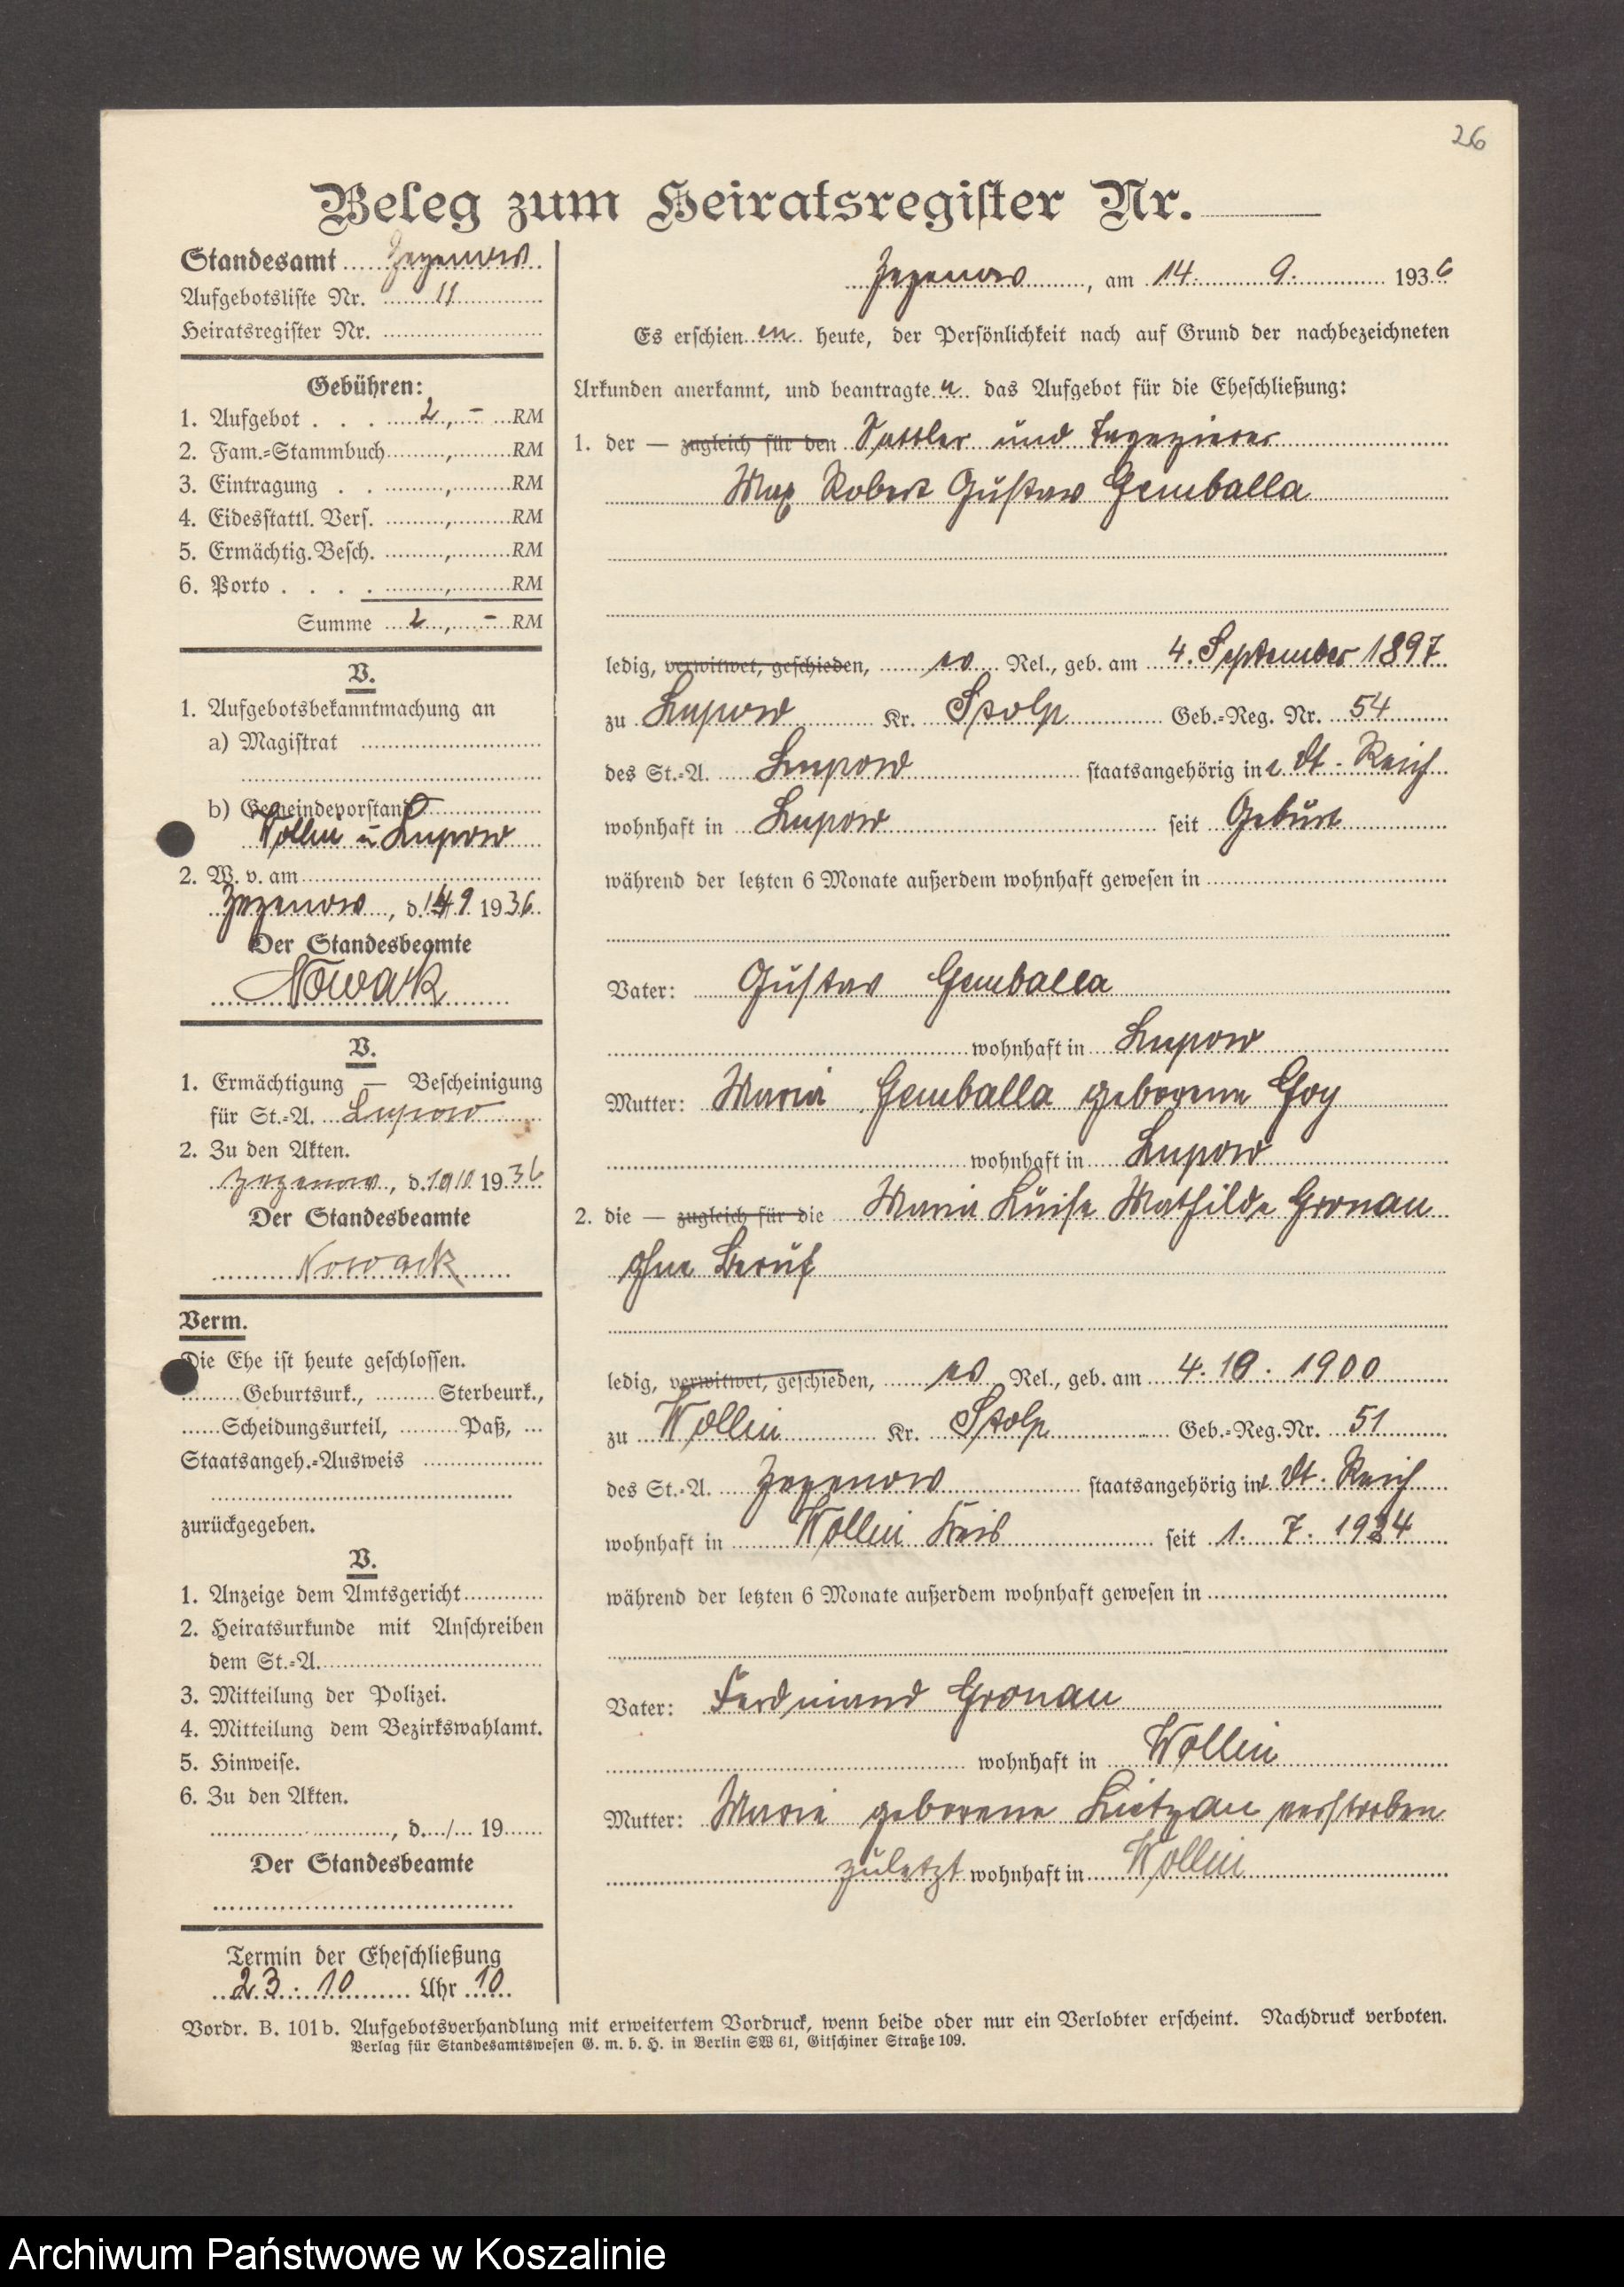 26
Beleg zum Heiratsregister Nr.
Standesamt Zezenow
Aufgebotsliste Nr. 11
Heiratsregister Nr.
Gebühren:
1. Aufgebot . . . 2,- RM
2. Fam.-Stammbuch , RM
3. Eintragung . . , RM
4. Eidesstattl. Vers. , RM
5. Ermächtig. Besch. , RM
6. Porto . . . . , RM
Summe 2,- RM
V.
1. Aufgebotsbekanntmachung an
a) Magistrat
b) Gemeindevorstand
Wollin u Lupow
2. W. v. am
Zezenow, d. 14/9 1936.
Der Standesbeamte
Nowack
V.
1. Ermächtigung — Bescheinigung
für St.-A. Lupow
2. Zu den Akten.
Zezenow, d. 1936
Der Standesbeamte
Nowack
Verm.
Die Ehe ist heute geschlossen.
Geburtsurk., Sterbeurk.,
Scheidungsurteil, Paß,
Staatsangeh.-Ausweis
zurückgegeben.
V.
1. Anzeige dem Amtsgericht
2. Heiratsurkunde mit Anschreiben
dem St.-A.
3. Mitteilung der Polizei.
4. Mitteilung dem Bezirkswahlamt.
5. Hinweise.
6. Zu den Akten.
, d. / 19
Der Standesbeamte
Termin der Eheschließung
23. 10 Uhr 10
Zezenow, am 14. 9. 1936
Es erschienen heute, der Persönlichkeit nach auf Grund der nachbezeichneten
Urkunden anerkannt, und beantragten das Aufgebot für die Eheschließung:
1. der — zugleich für den Sattler und Tapezierer
Max Robert Gustav Gemballa
ledig, verwitwet, geschieden, ev Rel., geb. am 4. September 1897
zu Lupow Kr. Stolp Geb.-Reg. Nr. 54
des St.-A. Lupow staatsangehörig in Dt. Reich
wohnhaft in Lupow seit Geburt
während der letzten 6 Monate außerdem wohnhaft gewesen in
Vater: Gustav Gemballa
wohnhaft in Lupow
Mutter: Maria Gemballa geborene Goy
wohnhaft in Lupow
2. die — zugleich für die Maria Luise Mathilde Gronau
ohne Beruf
ledig, verwitwet, geschieden, ev Rel., geb. am 4. 10. 1900
zu Wollin Kr. Stolp Geb.-Reg. Nr. 51
des St.-A. Zezenow staatsangehörig in Dt. Reich
wohnhaft in Wollin seit 1. 7. 1934
während der letzten 6 Monate außerdem wohnhaft gewesen in
Vater: Ferdinand Gronau
wohnhaft in Wollin
Mutter: Marie geborene Lietzau verstorben
zuletzt wohnhaft in Wollin
Vordr. B. 101b. Aufgebotsverhandlung mit erweitertem Vordruck, wenn beide oder nur ein Verlobter erscheint. Nachdruck verboten.
Verlag für Standesamtswesen G. m. b. H. in Berlin SW 61, Gitschiner Straße 109.
Archiwum Państwowe w Koszalinie